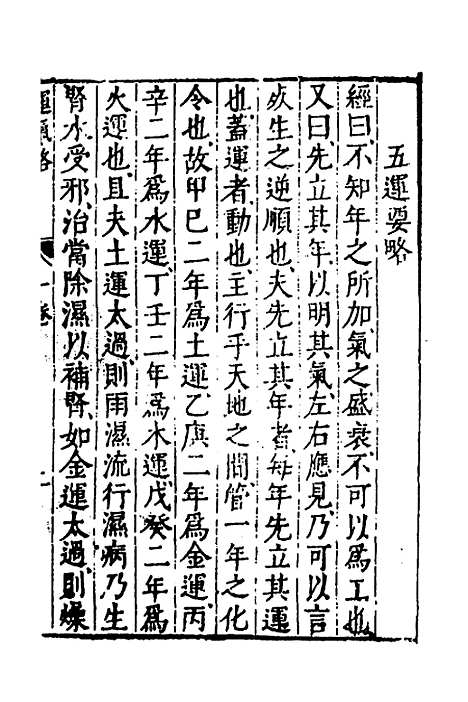 五運要略
經曰、不知年之所加、氣之盛衰、不可以爲工也
又曰、先立其年、以明其氣、左右應見、乃可以言
死生之逆順也、夫先立其年者、每年先立其運
也、蓋運者、動也、主行乎天地之間、管一年之化
令也、故甲巳二年爲土運、乙庚二年爲金運、丙
辛二年爲水運、丁壬二年爲木運、戊癸二年爲
火運也、且夫土運太過、則雨濕流行、濕病乃生
腎水受邪、治當除濕以補腎、如金運太過、則燥
運 略 一卷